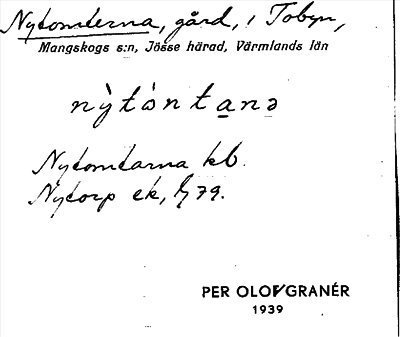 Nytomterna, gård, i Tobyn,
Mangskogs s:n, Jösse härad, Värmlands län
nỳtònta̲nə
Nytomtarna kb.
Nytorp ek, 79.
PER OLOV GRANÉR
1939